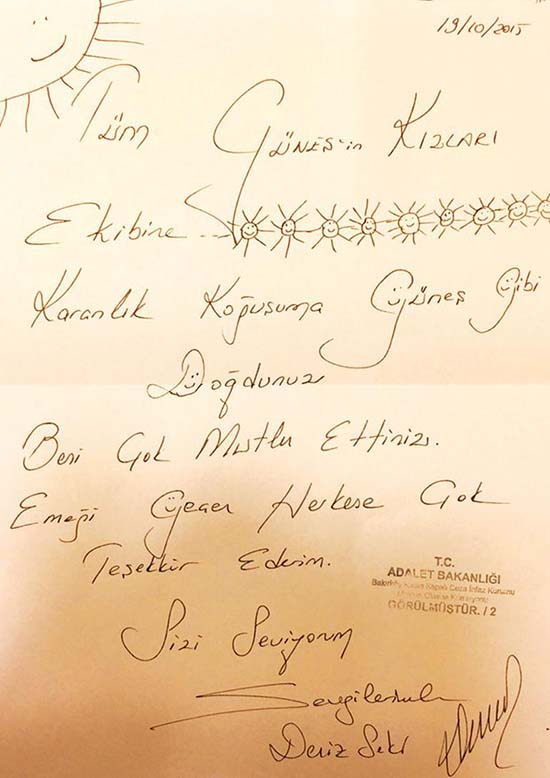 19/10/2015
Tüm GÜNEŞ'in KIZLARI
Ekibine...
Karanlık Koğuşuma Güneş Gibi
Doğdunuz
Beni Çok Mutlu Ettiniz.
Emeği Geçen Herkese Çok
Teşekkür Ederim.
T.C.
ADALET BAKANLIĞI
Bakırköy Kadın Kapalı Ceza İnfaz Kurumu
GÖRÜLMÜŞTÜR. / 2
Sizi Seviyorum
Sevgilerimle
Deniz Seki